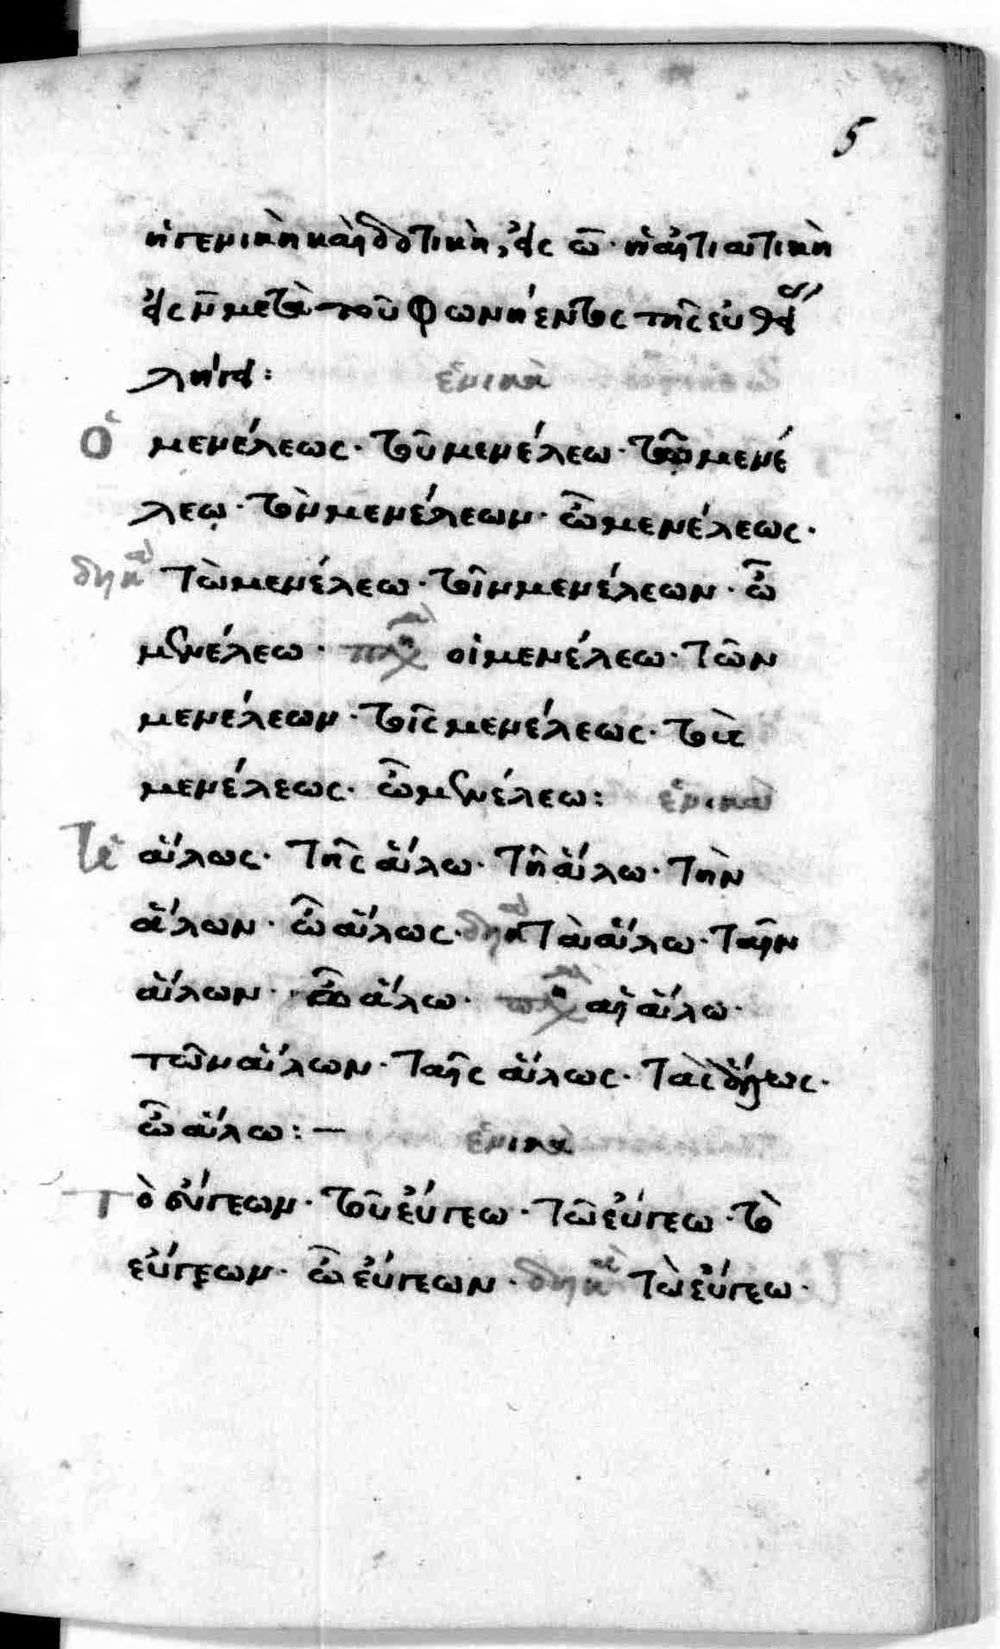 5
ἡ γενικὴ καὶ ἡ δοτικὴ, εἰς ω̄· ἡ αἰτιατικὴ
εἰς ν̄ μετὰ τοῦ φωνήεντος τῆς εὐθεί
λήγει: ἑνικὰ
Ὁ μενέλεως· τοῦ μενέλεω· τῷ μενέ
λεῳ· τὸν μενέλεων· ὦ μενέλεως·
δηκα τὼ μενέλεω· τοῖν μενέλεων· ὦ
μενέλεω· οἱ μενέλεω· τῶν
μενελέων· τοῖς μενέλεως· τοὺς
μενέλεως· ὦ μενέλεω: ἑνικαὶ
ἅλως· τῆς ἅλω· τῇ ἅλω· τὴν
ἅλων· ὦ ἅλως· δηκα τὰ ἅλω· ταῖν
ἅλων· ὦ ἅλω· αἱ ἅλω·
τῶν ἅλων· ταῖς ἅλως· τὰς ἅλως·
ὦ ἅλω:— ἑνικὰ
Τὸ εὔγεων· τοῦ εὔγεω· τῷ εὔγεω· τὸ
εὔγεων· ὦ εὔγεων· δηκα τὼ εὔγεω·